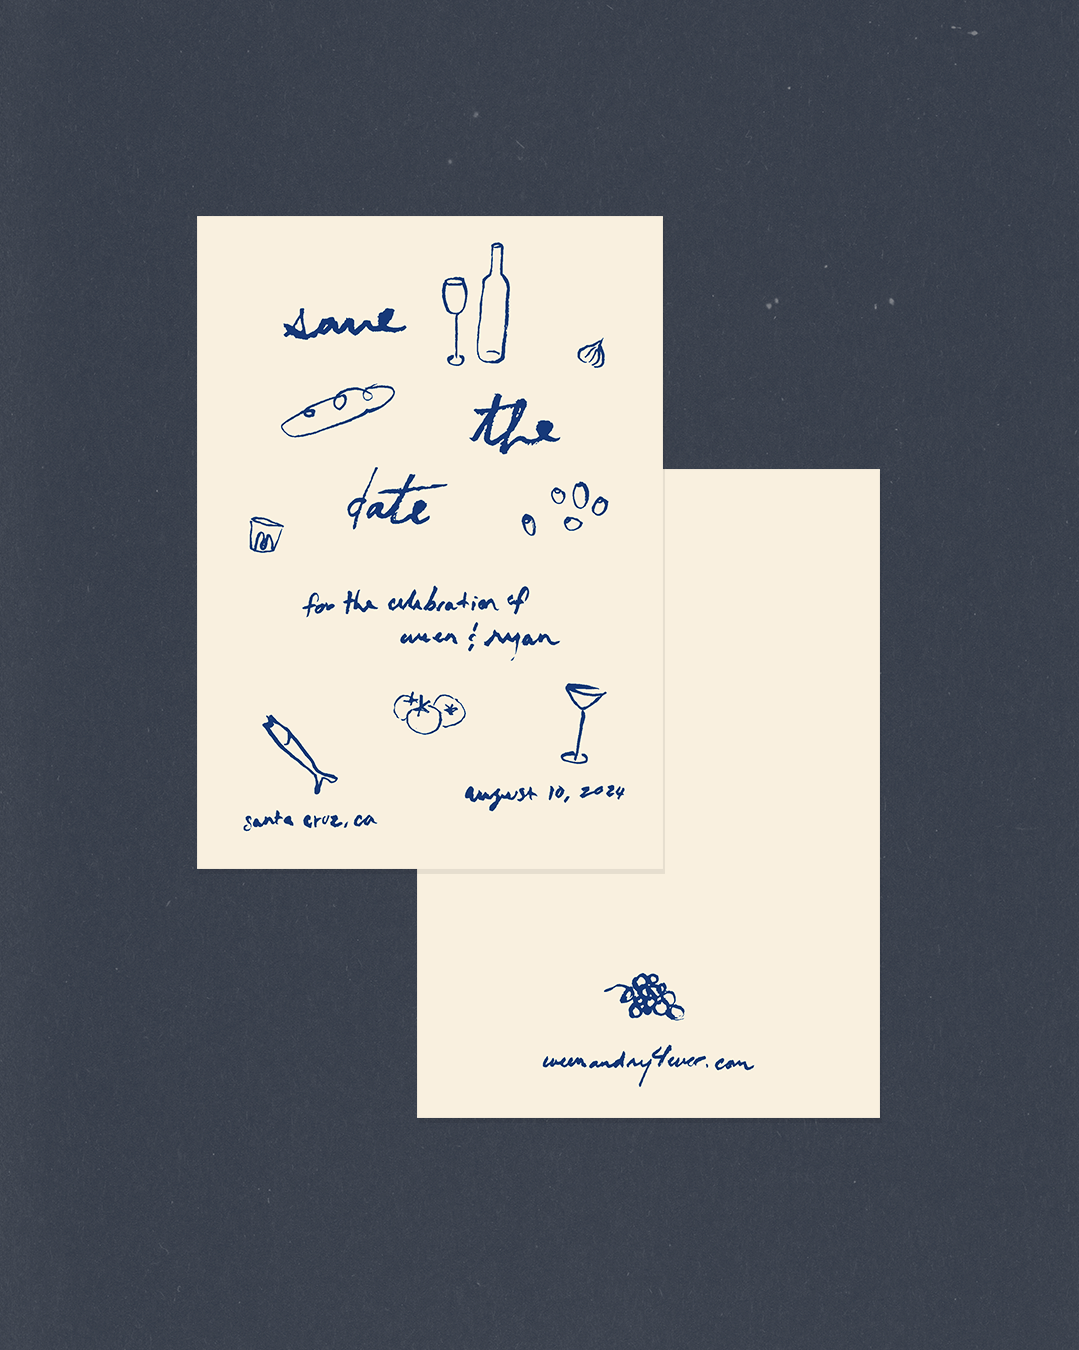 save
the
date
for the celebration of
ween & ryan
august 10, 2024
santa cruz, ca
weenandry4ever.com